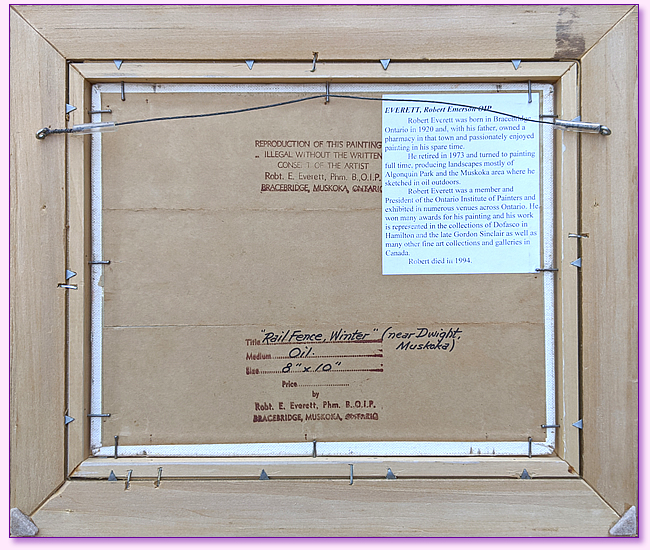 EVERETT, Robert Emerson OIP
Robert Everett was born in Bracebridge
Ontario in 1920 and, with his father, owned a
pharmacy in that town and passionately enjoyed
painting in his spare time.
He retired in 1973 and turned to painting
full time, producing landscapes mostly of
Algonquin Park and the Muskoka area where he
sketched in oil outdoors.
Robert Everett was a member and
President of the Ontario Institute of Painters and
exhibited in numerous venues across Ontario. He
won many awards for his painting and his work
is represented in the collections of Dofasco in
Hamilton and the late Gordon Sinclair as well as
many other fine art collections and galleries in
Canada.
Robert died in 1994.
REPRODUCTION OF THIS PAINTING
ILLEGAL WITHOUT THE WRITTEN
CONSENT OF THE ARTIST
Robt. E. Everett, Phm. B.,O.I.P.
BRACEBRIDGE, MUSKOKA, ONTARIO
Title "Rail Fence, Winter" (near Dwight,
Muskoka)
Medium Oil.
Size 8" x 10"
Price
by
Robt. E. Everett, Phm. B.,O.I.P.
BRACEBRIDGE, MUSKOKA, ONTARIO